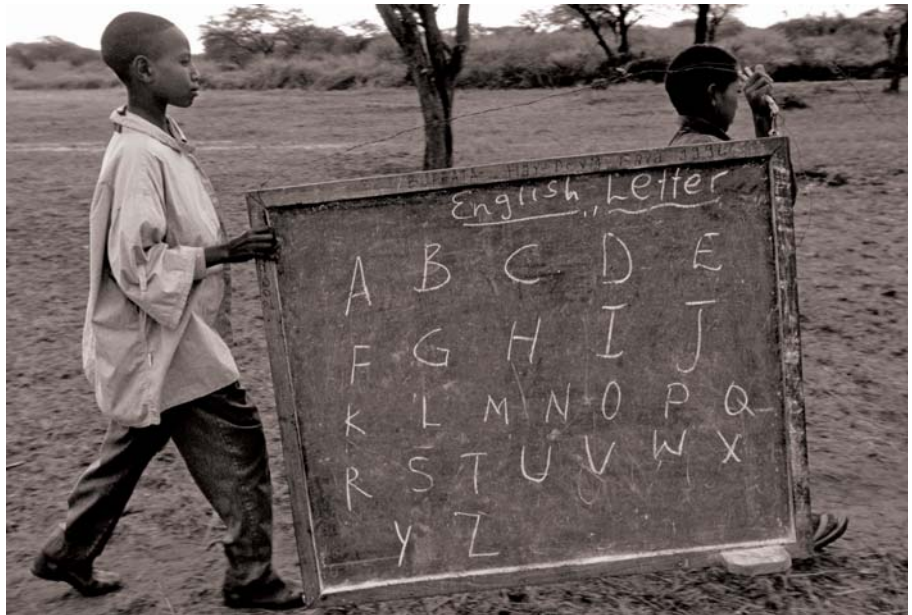 English ,, Letter
A B C D E
F G H I J
K L M N O P Q
R S T U V W X
Y Z